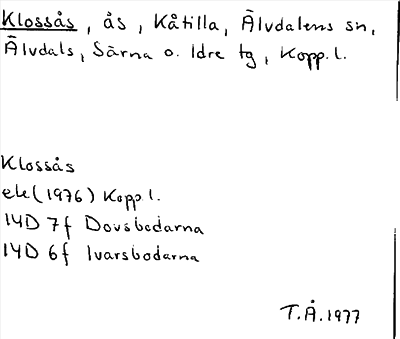 Klossås, ås, Kåtilla, Älvdalens sn,
Älvdals, Särna o. Idre tg, Kopp. l.
Klossås
ek (1976) Kopp. l.
14D 7f Dovsbodarna
14D 6f Ivarsbodarna
T.Å. 1977